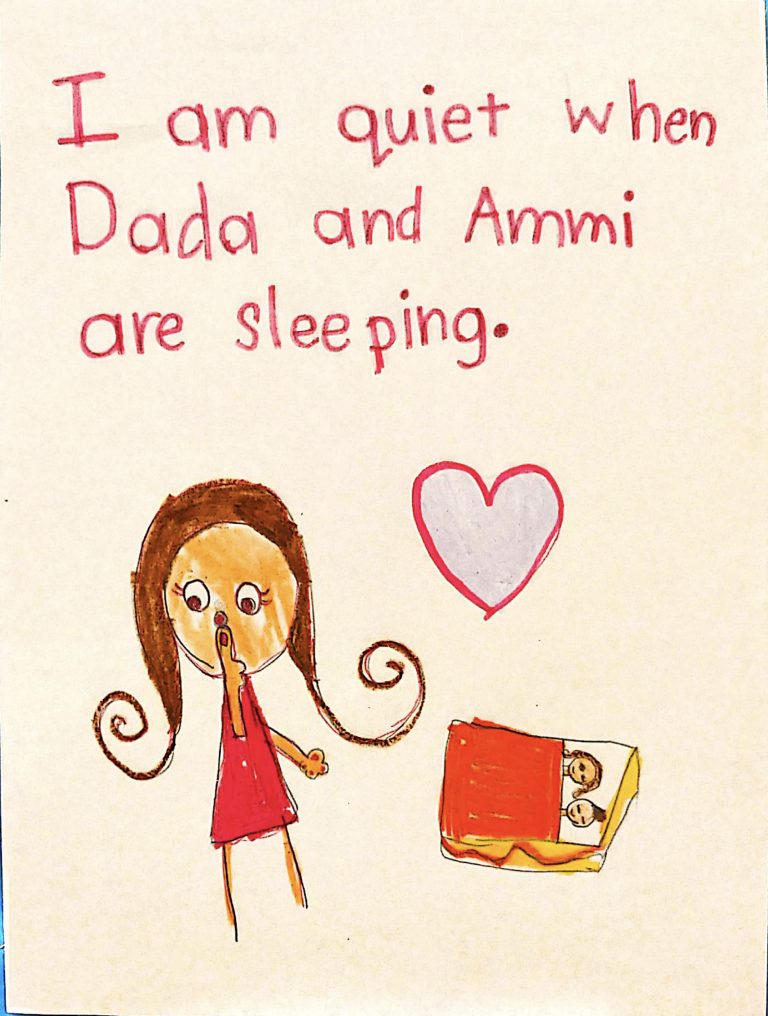 I am quiet when
Dada and Ammi
are sleeping.